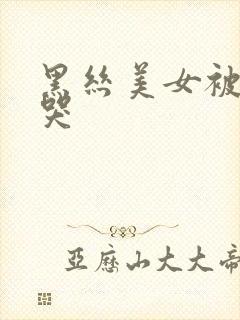 黑丝美女被
哭
亚历山大大帝